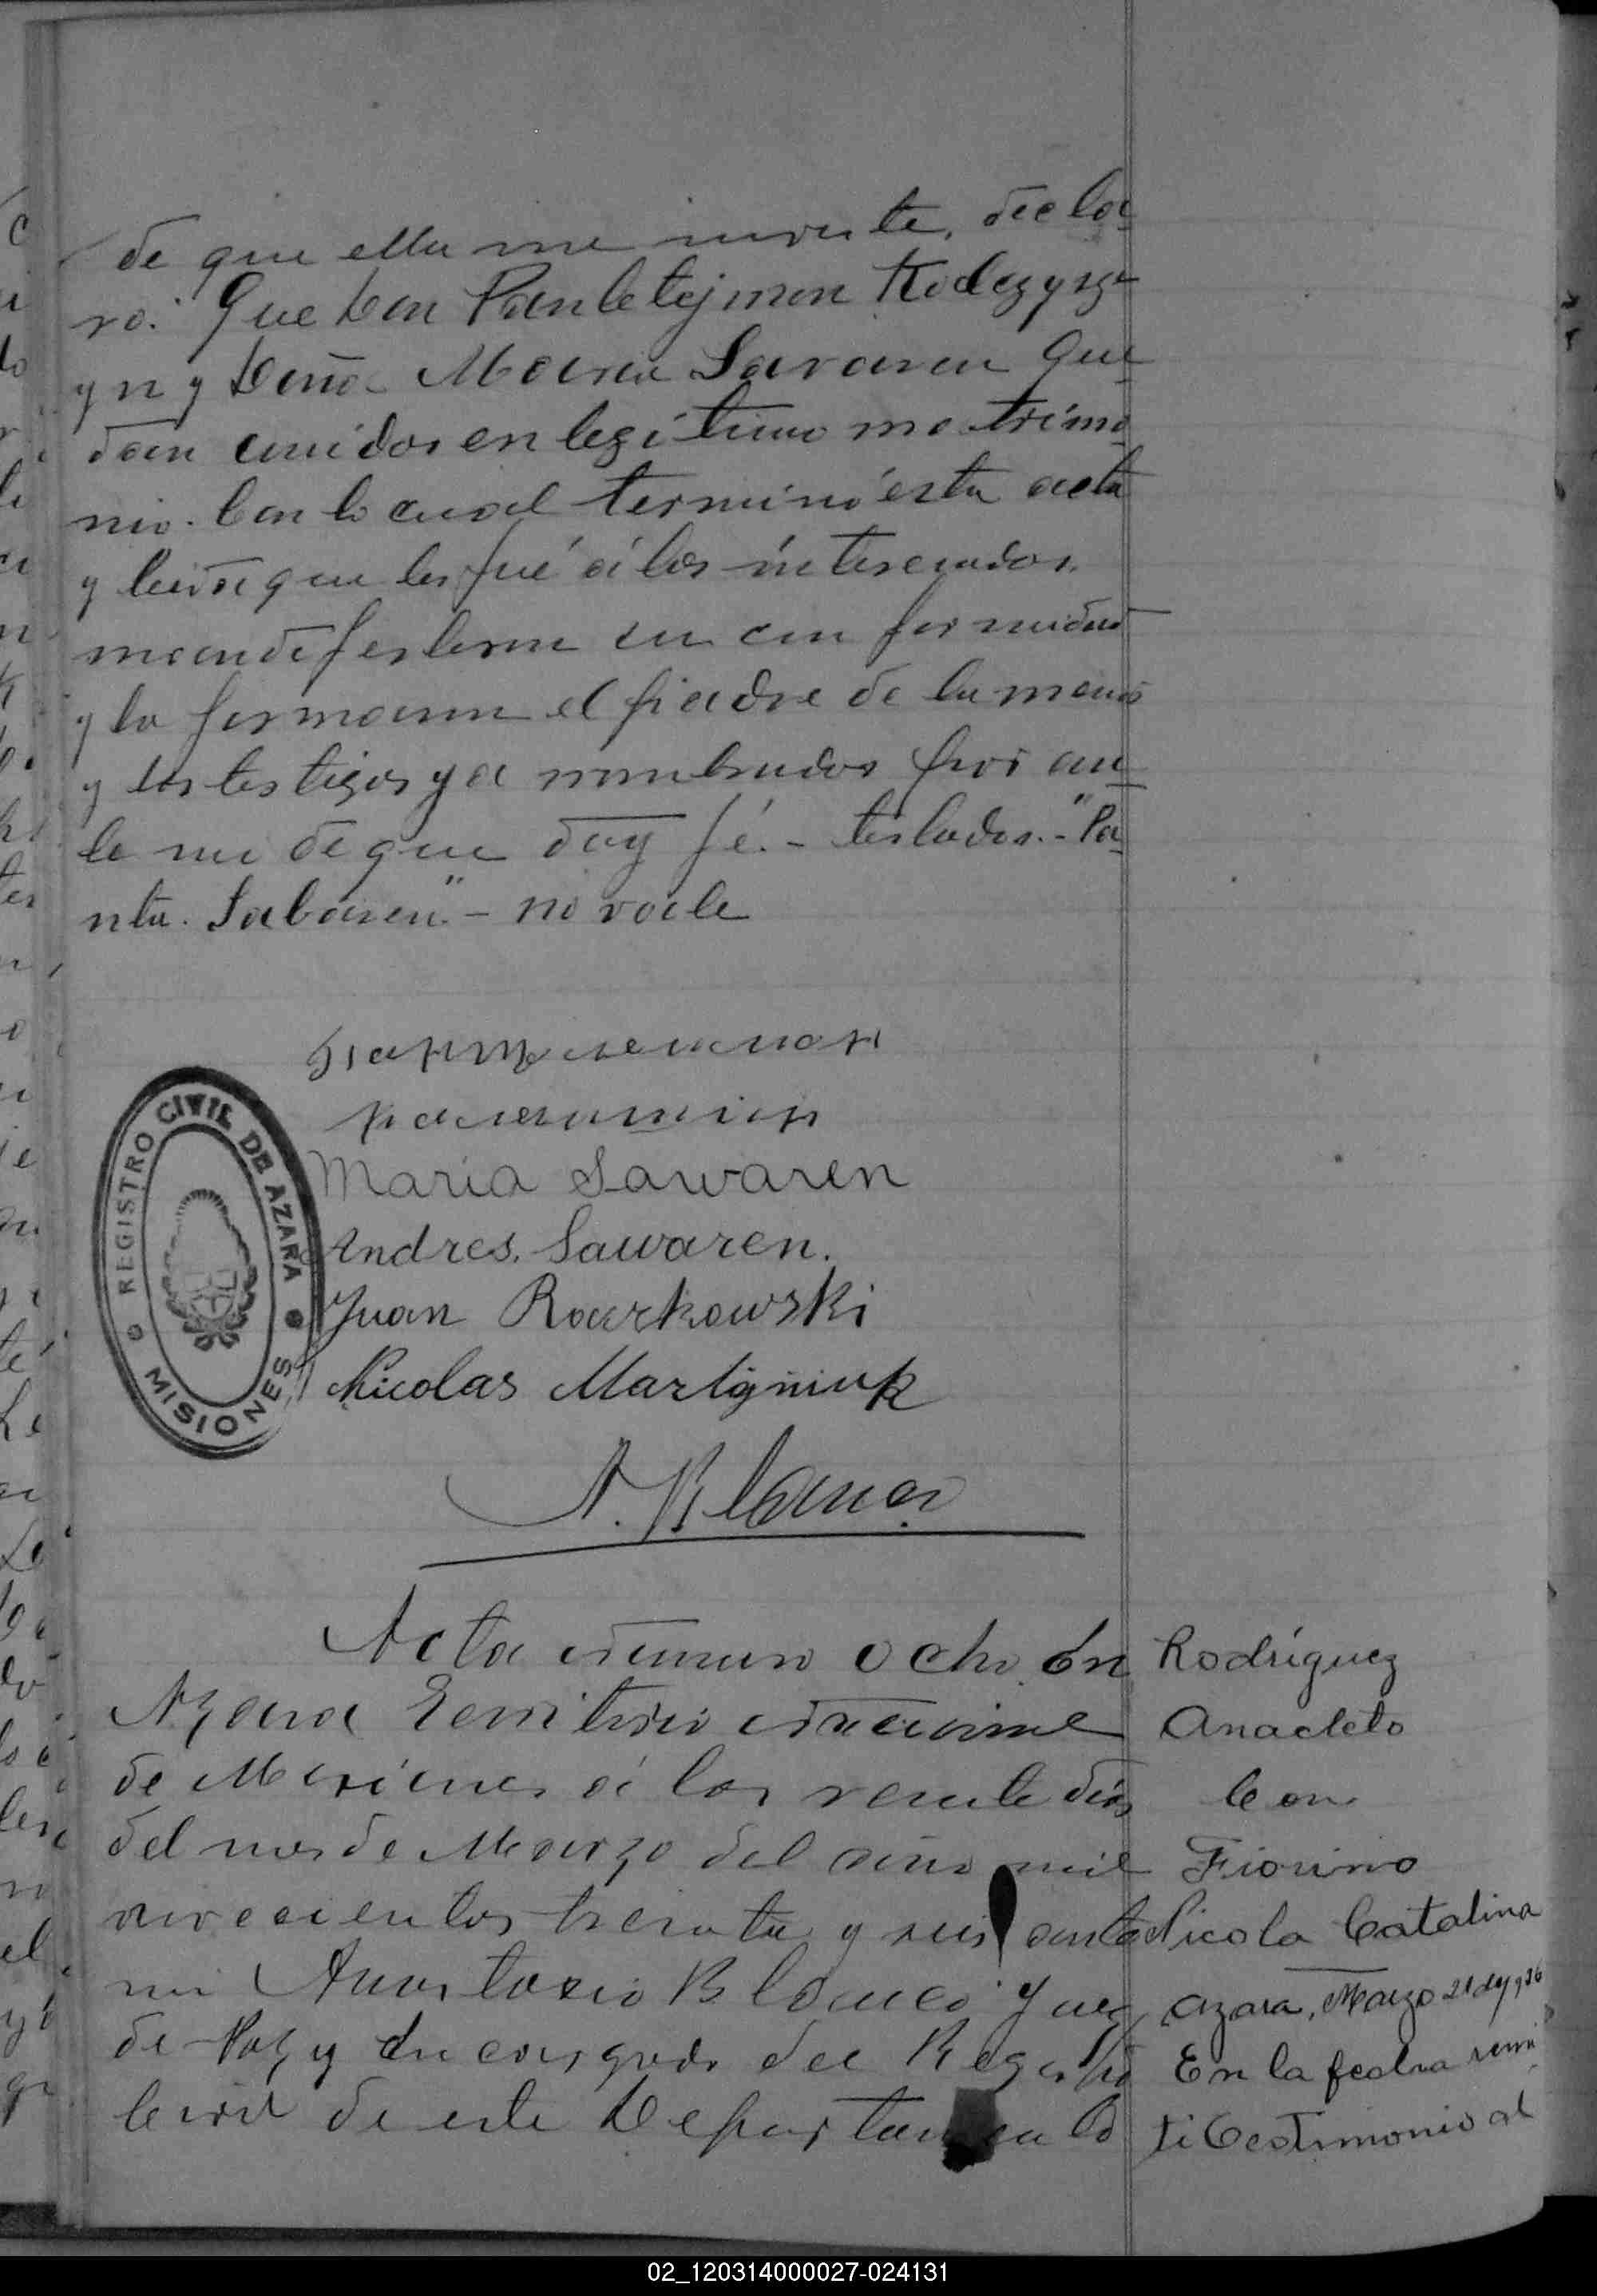 de que ella me inviste, decla-
ró: Que Don Panletejmon Kolezysz
yn y Doña Maria Savaren que-
dan unidos en legítimo matrimo-
nio. Con lo cual terminó esta acta
y leida que les fué á los interesados,
manifestaron su conformidad
y la firmaron el padre de la menor
y los testigos ya nombrados por an-
te mi de que doy fé. - testados. - "Pa-
nta. Sabaren" - no vale
Maria Sawaren
Andres. Sawaren.
Juan
Nicolas Martyniuk
A. Blanco
REGISTRO CIVIL DE AZARA
MISIONES
Acta número ocho En
Azara Territorio nacional
de Misiones á los veinte dias
del mes de Marzo del año mil
novecientos treinta y seis ante
mi Anastasio Blanco Juez
de Paz y Encargado del Registro
Civil de este Departamento
Rodríguez
Anacleto
Con
Fiorino
Nicola Catalina
Azara, Marzo 21 de 1936
En la fecha remi
ti testimonio al
02_120314000027-024131